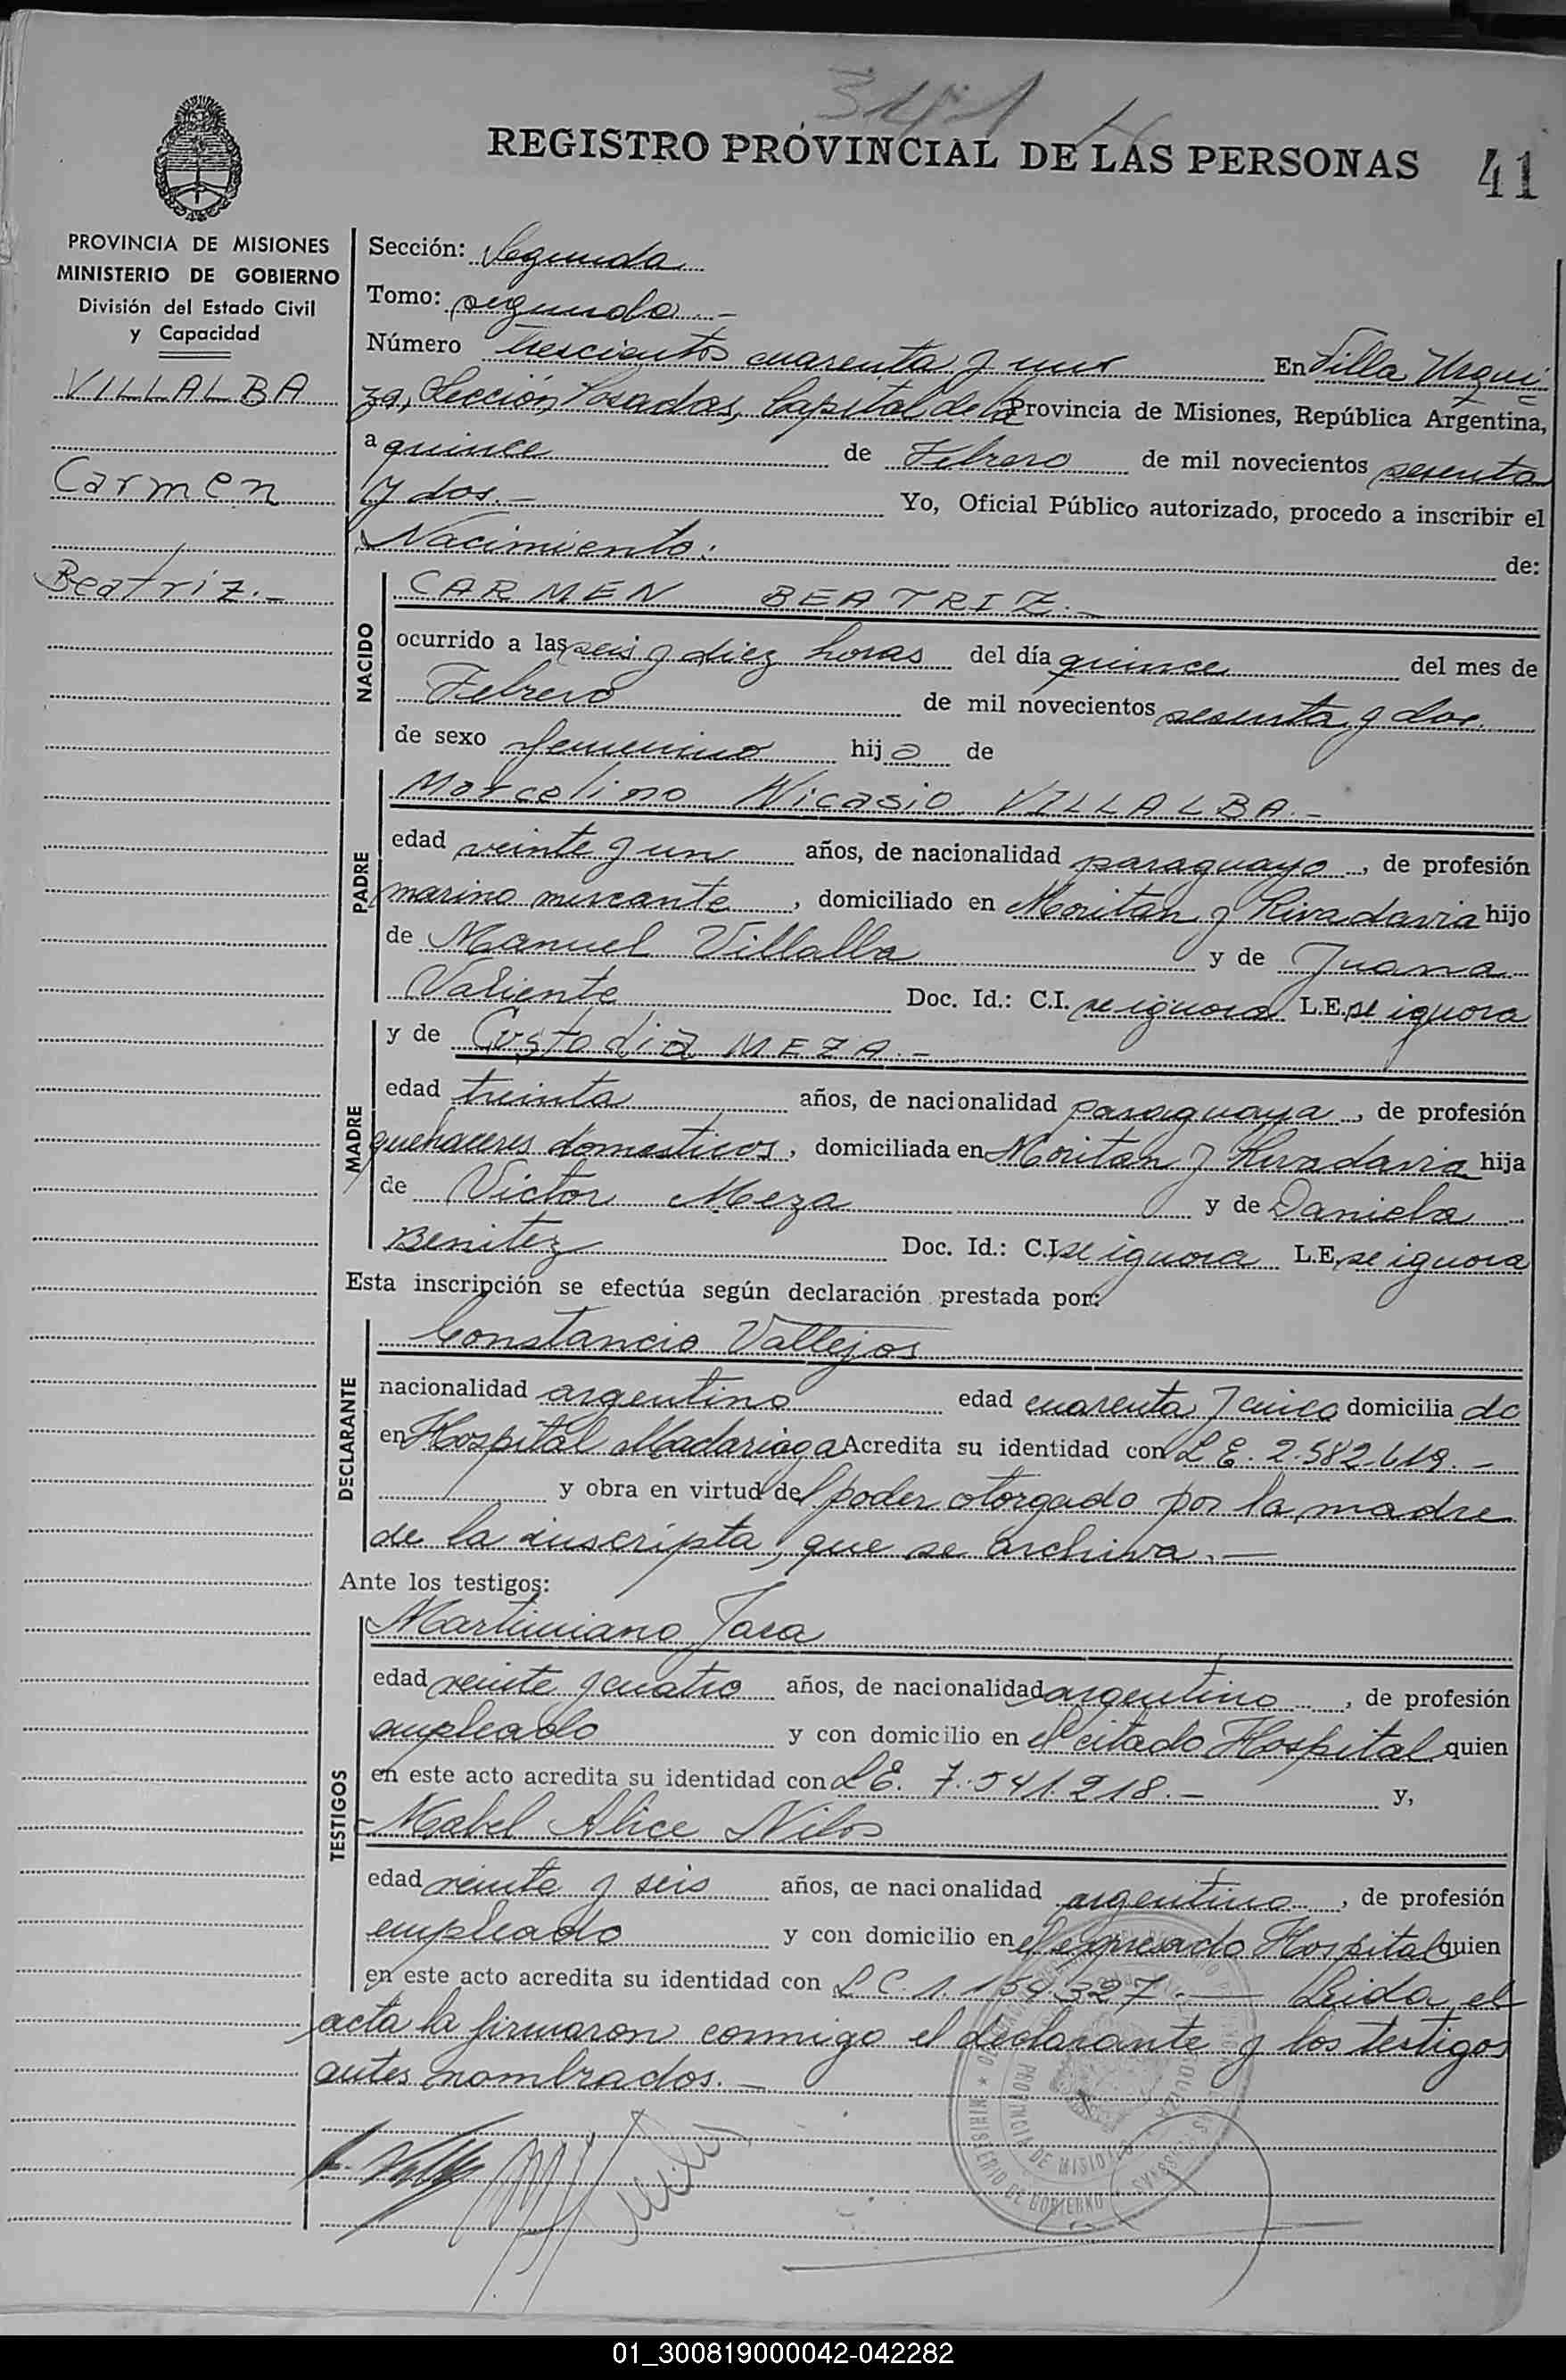 341
REGISTRO PROVINCIAL DE LAS PERSONAS 41
PROVINCIA DE MISIONES
MINISTERIO DE GOBIERNO
División del Estado Civil
y Capacidad
VILLALBA
Carmen
Beatriz.-
Sección: Segunda
Tomo: segundo.-
Número trescientos cuarenta y uno En Villa Urqui
za, Sección Posadas, Capital de la Provincia de Misiones, República Argentina,
a quince de Febrero de mil novecientos sesenta
y dos.- Yo, Oficial Público autorizado, procedo a inscribir el
Nacimiento: de:
NACIDO
CARMEN BEATRIZ.-
ocurrido a las seis y diez horas del día quince del mes de
Febrero de mil novecientos sesenta y dos.
de sexo femenino hija de
PADRE
Marcelino Nicasio VILLALBA.-
edad veinte y un años, de nacionalidad paraguayo, de profesión
marino mercante, domiciliado en Moritan y Rivadavia hijo
de Manuel Villalba y de Juana
Valiente Doc. Id.: C.I. se ignora L.E. se ignora
MADRE
y de Custodia MEZA.-
edad treinta años, de nacionalidad paraguaya, de profesión
quehaceres domesticos, domiciliada en Moritan y Rivadavia hija
de Victor Meza y de Daniela
Benitez Doc. Id.: C.I. se ignora L.E. se ignora
Esta inscripción se efectúa según declaración prestada por:
DECLARANTE
Constancio Vallejos
nacionalidad argentino edad cuarenta y cinco domicilia do
en Hospital Madariaga Acredita su identidad con L E. 2.582.619.-
y obra en virtud del poder otorgado por la madre
de la inscripta, que se archiva.-
Ante los testigos:
TESTIGOS
Martiniano Jara
edad veinte y cuatro años, de nacionalidad argentino, de profesión
empleado y con domicilio en el citado Hospital quien
en este acto acredita su identidad con L E. 7.541.218.- y,
Mabel Alice Nilos
edad veinte y seis años, de nacionalidad argentino, de profesión
empleado y con domicilio en el expresado Hospital quien
en este acto acredita su identidad con L C. 1.159.327.- Leida el
acta la firmaron conmigo el declarante y los testigos
antes nombrados.-
MINISTERIO DE GOBIERNO
PROVINCIA DE MISIONES
01_300819000042-042282